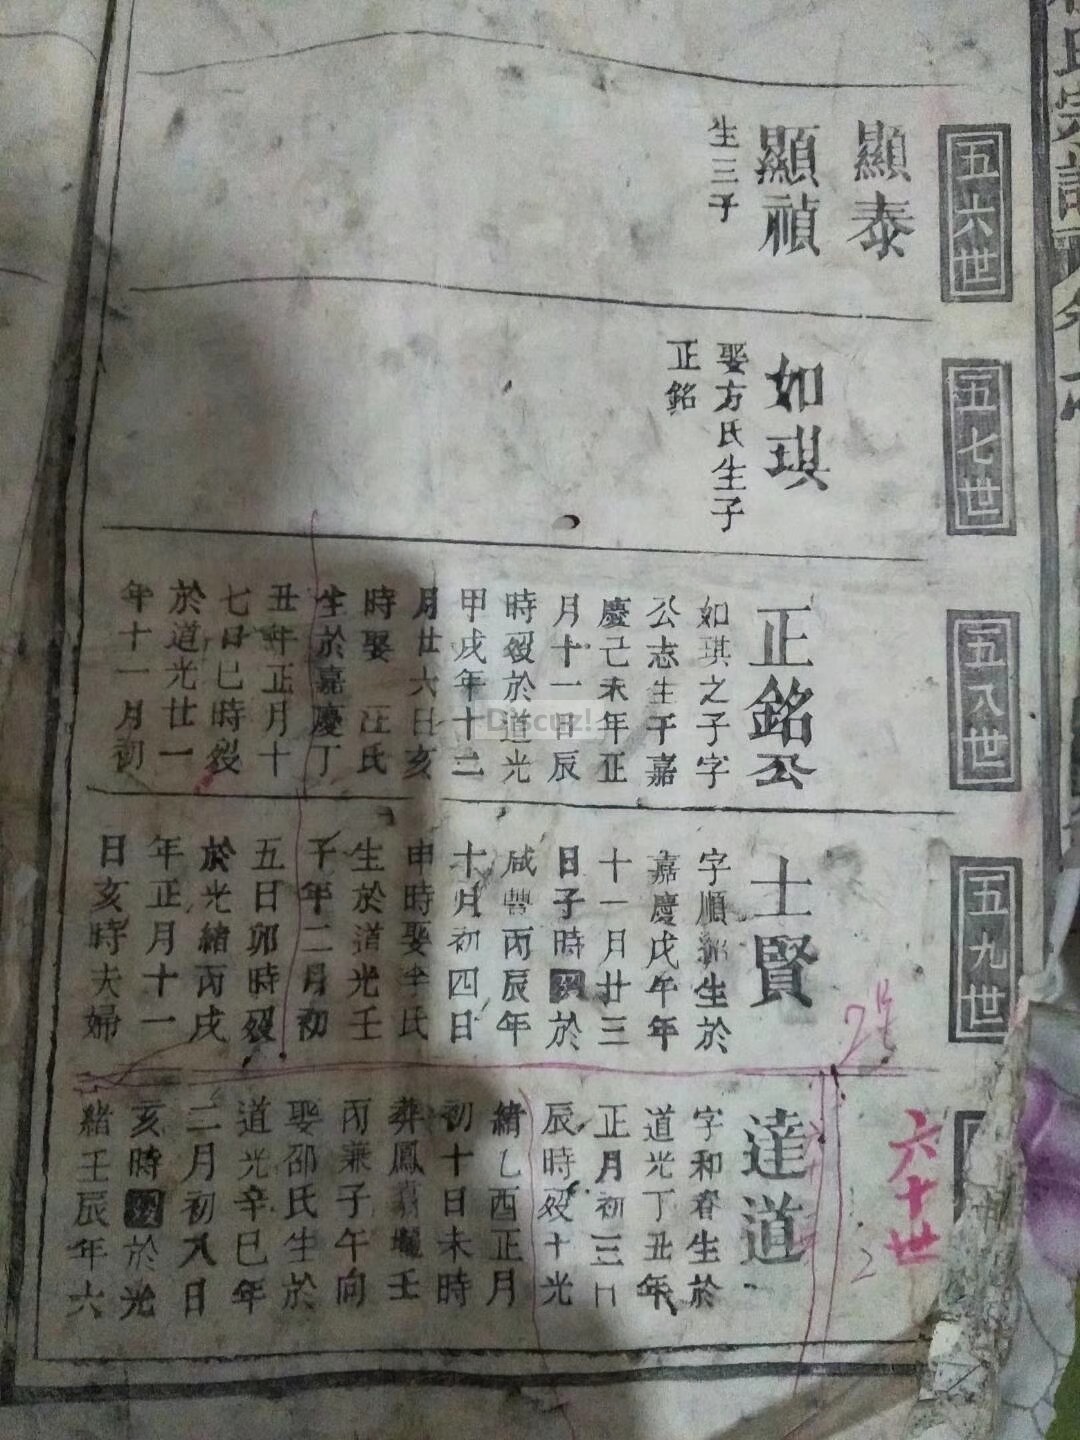 氏宗譜
五六世
顯泰
顯禎
生三子
五七世
如琪
娶方氏生子
正銘
五八世
正銘公
如琪之子字
公志生于嘉
慶己未年正
月十一日辰
時殁於道光
甲戌年十二
月廿六日亥
時娶汪氏
生於嘉慶丁
丑年正月十
七日巳時殁
於道光廿一
年十一月初
五九世
士賢
字順生於
嘉慶戊午年
十一月廿三
日子時殁於
咸豐丙辰年
十月初四日
申時娶李氏
生於道光壬
子年二月初
五日卯時殁
於光緒丙戌
年正月十一
日亥時夫婦
2
六十世
2
達道
字和春生於
道光丁丑年
正月初三日
辰時殁于光
緒乙酉正月
初十日未時
葬鳳壬
丙兼子午向
娶邵氏生於
道光辛巳年
二月初八日
亥時殁於光
緒壬辰年六
Discuz!